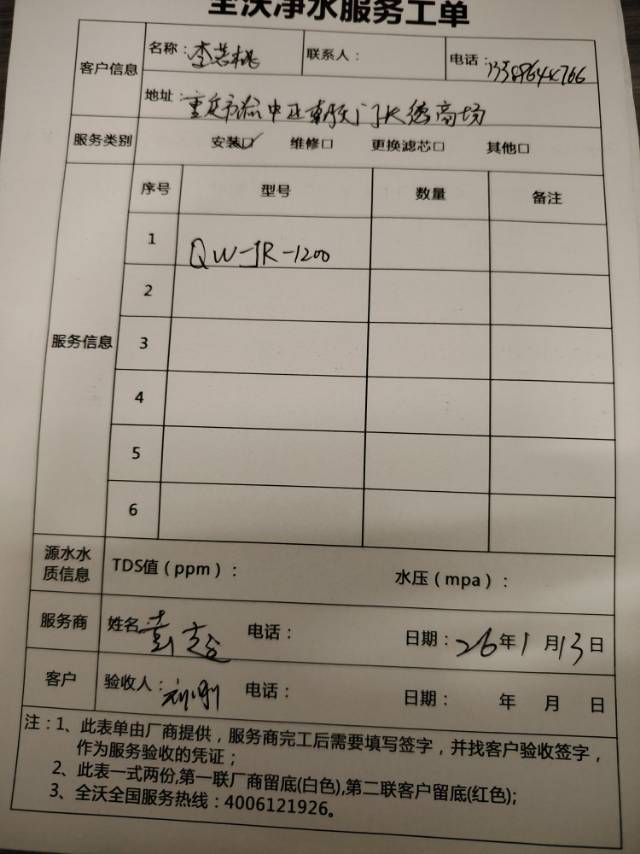 全沃净水服务工单
客户信息
名称：李若桃 联系人： 电话：
地址：重庆市渝中区朝天门
服务类别 安装☑ 维修□ 更换滤芯□ 其他□
服务信息
序号 型号 数量 备注
1 QW-JR-1200
2
3
4
5
6
源水水质信息 TDS值（ppm）： 水压（mpa）：
服务商 姓名 电话： 日期：26年1月13日
客户 验收人： 电话： 日期： 年 月 日
注：1、此表单由厂商提供，服务商完工后需要填写签字，并找客户验收签字，
作为服务验收的凭证；
2、此表一式两份,第一联厂商留底(白色),第二联客户留底(红色);
3、全沃全国服务热线：4006121926。